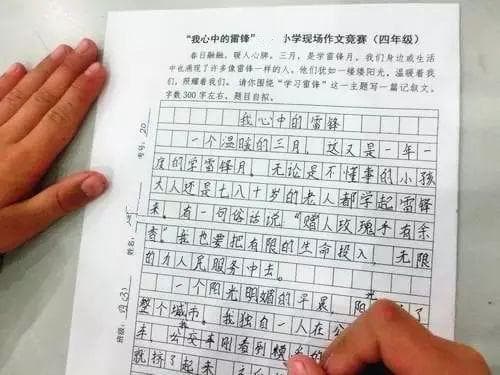 “我心中的雷锋” 小学现场作文竞赛（四年级）
春日融融，暖人心脾。三月，是学雷锋月。我们身边或生活
中也涌现了许多像雷锋一样的人。他们犹如一缕缕阳光，温暖着我
们，照耀着我们。请你围绕“学习雷锋”这一主题写一篇记叙文，
字数300字左右，题目自拟。
我心中的雷锋
一个温暖的三月，这又是一年一
度的学雷锋月。无论是不懂事的小孩
大人还是七八十岁的老人都学起雷锋
来。有一句俗话说，“赠人玫瑰手有余
香。”我也要把有限的生命投入，无限
的为人民服务中去。
一个阳光明媚的早晨，阳光了
整个城市。我独自一人在公
来，公交车刚看到
就挤了起来
考号：20
姓名：
班级：四(3)